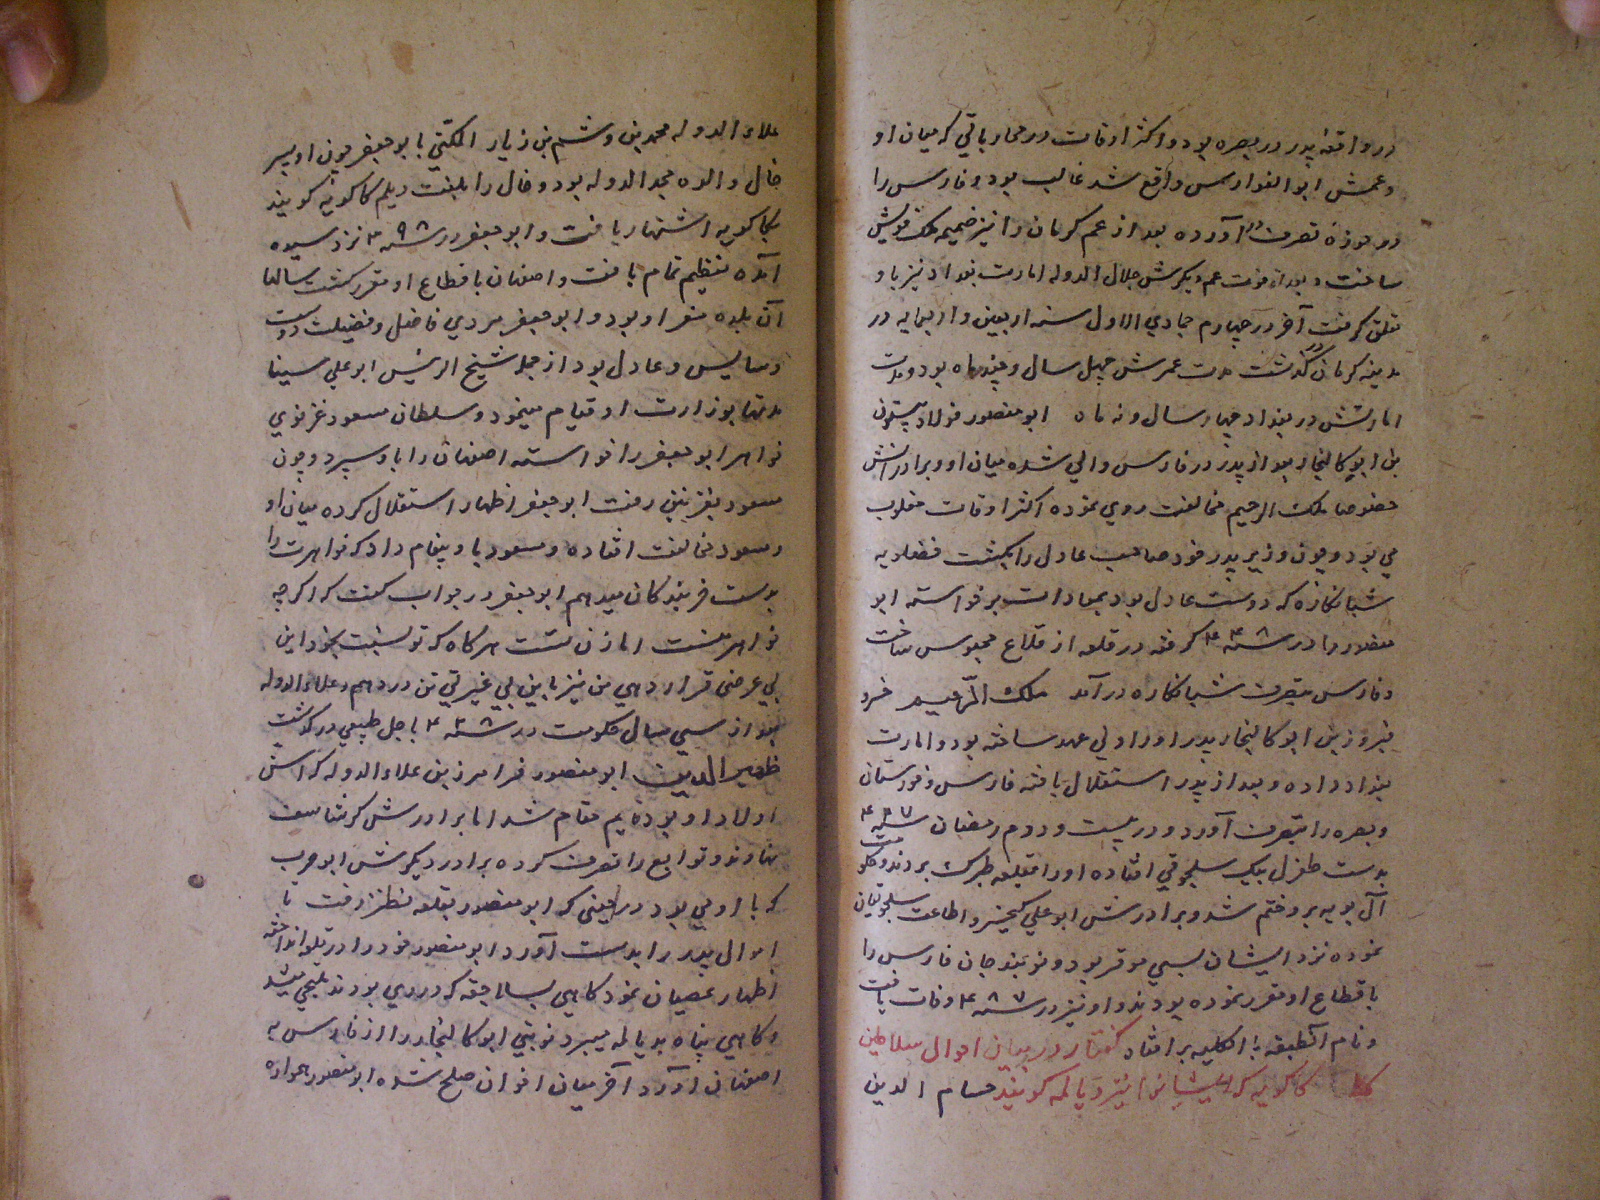 در واقعه پدر در بصره بود و اکثر اوقات در محارباتی که میان او
و عمش ابوالفوارس واقع شد غالب بود و فارس را
در حوزه تصرف آورده بعد از عم کرمان را نیز ضمیمه ملک خویش
ساخت و بعد از فوت عم دیکرش جلال الدوله امارت بغداد نیز باو
تعلق کرفت آخر در چهارم جمادی الاول سنه اربعین و اربعمایه در
مدینه کرمان درکذشت مدت عمرش چهل سال و چند ماه بود و مدت
امارتش در بغداد چهار سال و نه ماه ابو منصور فولاد ستون
بن ابو کالنجار بعد از پدر در فارس والی شده میان او و برادرانش
خصوصا ملک الرحیم مخالفت روی نموده اکثر اوقات مغلوب
می بود و چون وزیر پدر خود صاحب عادل را بکشت فضلویه
شبانکاره که دوست عادل بود بمعادات برخواسته ابو
منصور را در سنه ۴۴۸ کرفته در قلعه از قلاع محبوس ساخت
و فارس بتصرف شبانکاره درآمد ملک الرحیم خسرو
فیروز بن ابو کالنجار پدر او را ولی عهد ساخته بود و امارت
بغداد داده و بعد از پدر استقلال یافته فارس و خوزستان
و بصره را بتصرف آورد و در بیست و دوم رمضان سنه ۴۴۷
بدست طغرل بیک سلجوقی افتاده او را بقلعه طبرک بردند و حکومت
آل بویه برو ختم شد و برادرش ابو علی کیخسرو اطاعت سلجوقیان
نموده نزد ایشان بسی موقر بود و نوبندجان فارس را
باقطاع او مقرر نموده بودند و او نیز در سنه ۴۸۷ وفات یافت
و نام آنطبقه بالکلیه برافتاد کفتار در بیان احوال سلاطین
کاکویه که ایشانرا نیز دیالمه کویند حسام الدین
علاء الدوله محمد بن وشم بن زیار المکنی بابو جعفر چون او پسر
خال والده مجد الدوله بود و خال را بلغت دیلم کاکویه کویند
بکاکویه اشتهار یافت و ابو جعفر در سنه ۳۹۸ نزد سیده
آمده تعظیم تمام یافت و اصفهان باقطاع او مقرر کشت سالها
آن بلده مقر او بود و ابو جعفر مردی فاضل و فضیلت دوست
و سایس و عادل بود از جمله شیخ الرئیس ابو علی سینا
مدتها بوزارت او قیام مینمود و سلطان مسعود غزنوی
خواهر ابو جعفر را خواسته اصفهان را باو سپرد و چون
مسعود بغزنین رفت ابو جعفر اظهار استقلال کرده میان او
و مسعود مخالفت افتاده و مسعود باو پیغام داد که خواهرت را
بدست فربندکان میدهم ابو جعفر در جواب کفت که اکرچه
خواهر منست اما زن تست هرکاه که تو نسبت بخود این
بی عرضی قرار دهی من نیز باین بی غیرتی تن در دهم و علاء الدوله
بعد از سی سال حکومت در سنه ۴۳۸ باجل طبیعی درکذشت
ظهیر الدین ابو منصور فرامرز بن علاء الدوله که اسن
اولاد او بود قایم مقام شد اما برادرش کرشاسف
نهاوند و توابع را تصرف کرده برادر دیکرش ابو حرب
که با او می بود در حینی که ابو منصور بقلعه نطنز رفت تا
اموال پدر را بدست آورد ابو منصور خود را در قلعه انداخته
اظهار عصیان نمود کاهی بسلاجقه که در ری بودند ملتجی میشد
و کاهی پناه بدیالمه میبرد نوبتی ابو کالنجار را از فارس به
اصفهان آورد آخر میان اخوان صلح شده ابو منصور همواره